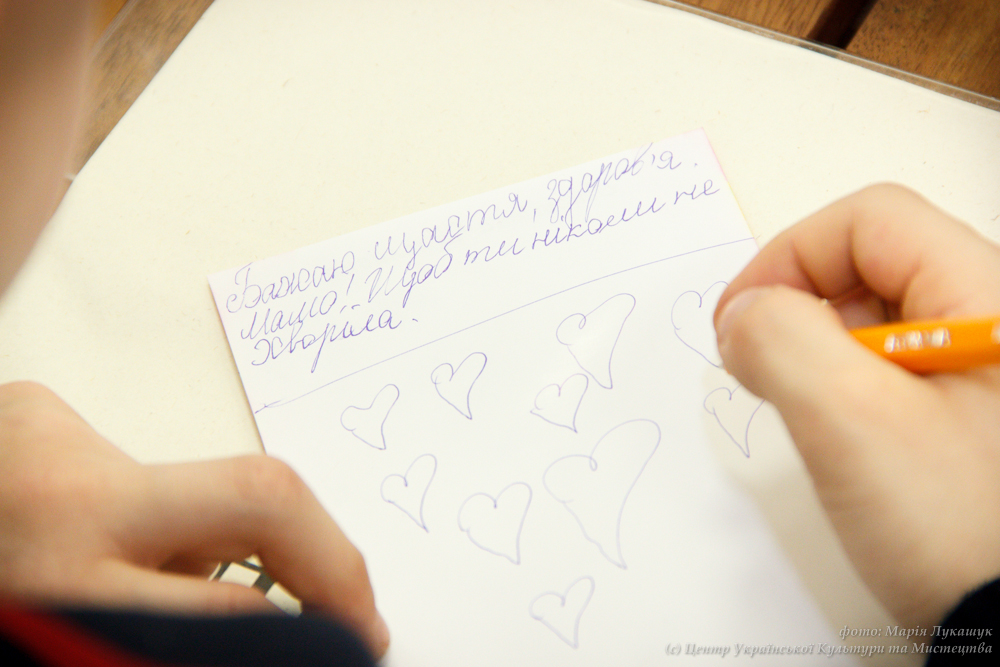 Бажаю щастя, здоров'я.
Мамо! Щоб ти ніколи не
хворіла.
фото: Марія Лукашук
(c) Центр Української Культури та Мистецтва